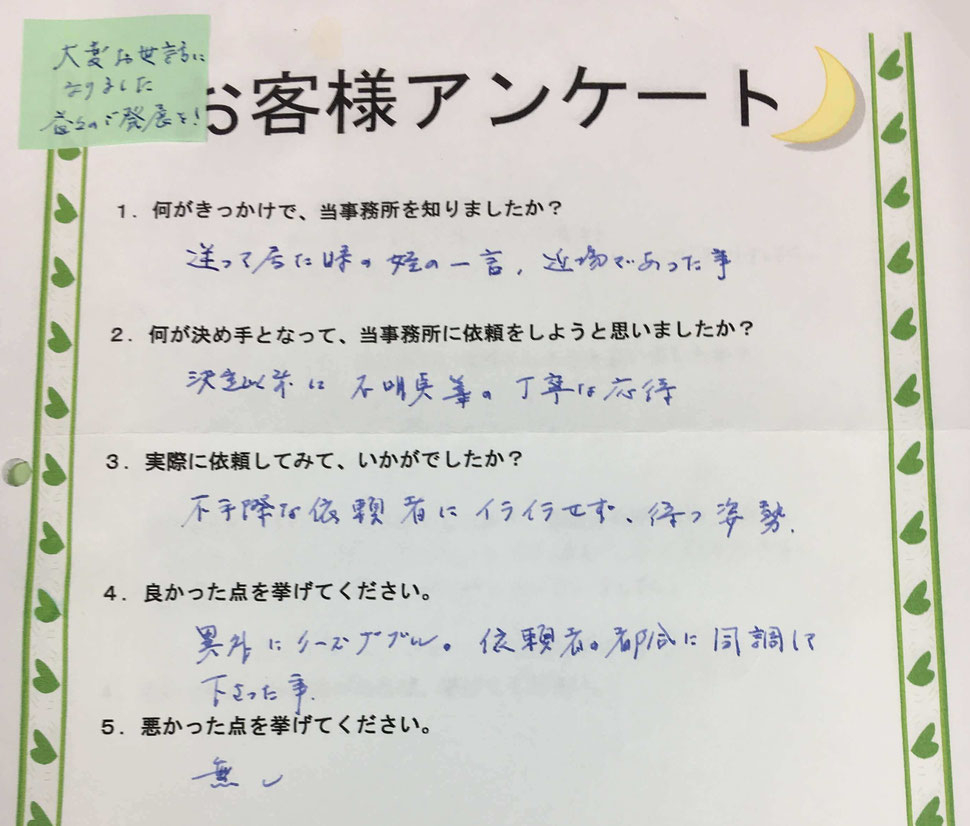 大変お世話に
なりました
益々のご発展を!
お客様アンケート
1. 何がきっかけで、当事務所を知りましたか？
迷って居た時の姪の一言、近場であった事
2. 何が決め手となって、当事務所に依頼をしようと思いましたか？
決定以前に不明点等の丁寧な応待
3. 実際に依頼してみて、いかがでしたか？
不手際な依頼者にイライラせず、待つ姿勢.
4. 良かった点を挙げてください。
異外にリーズナブル。依頼者の都合に同調して
下さった事.
5. 悪かった点を挙げてください。
無し